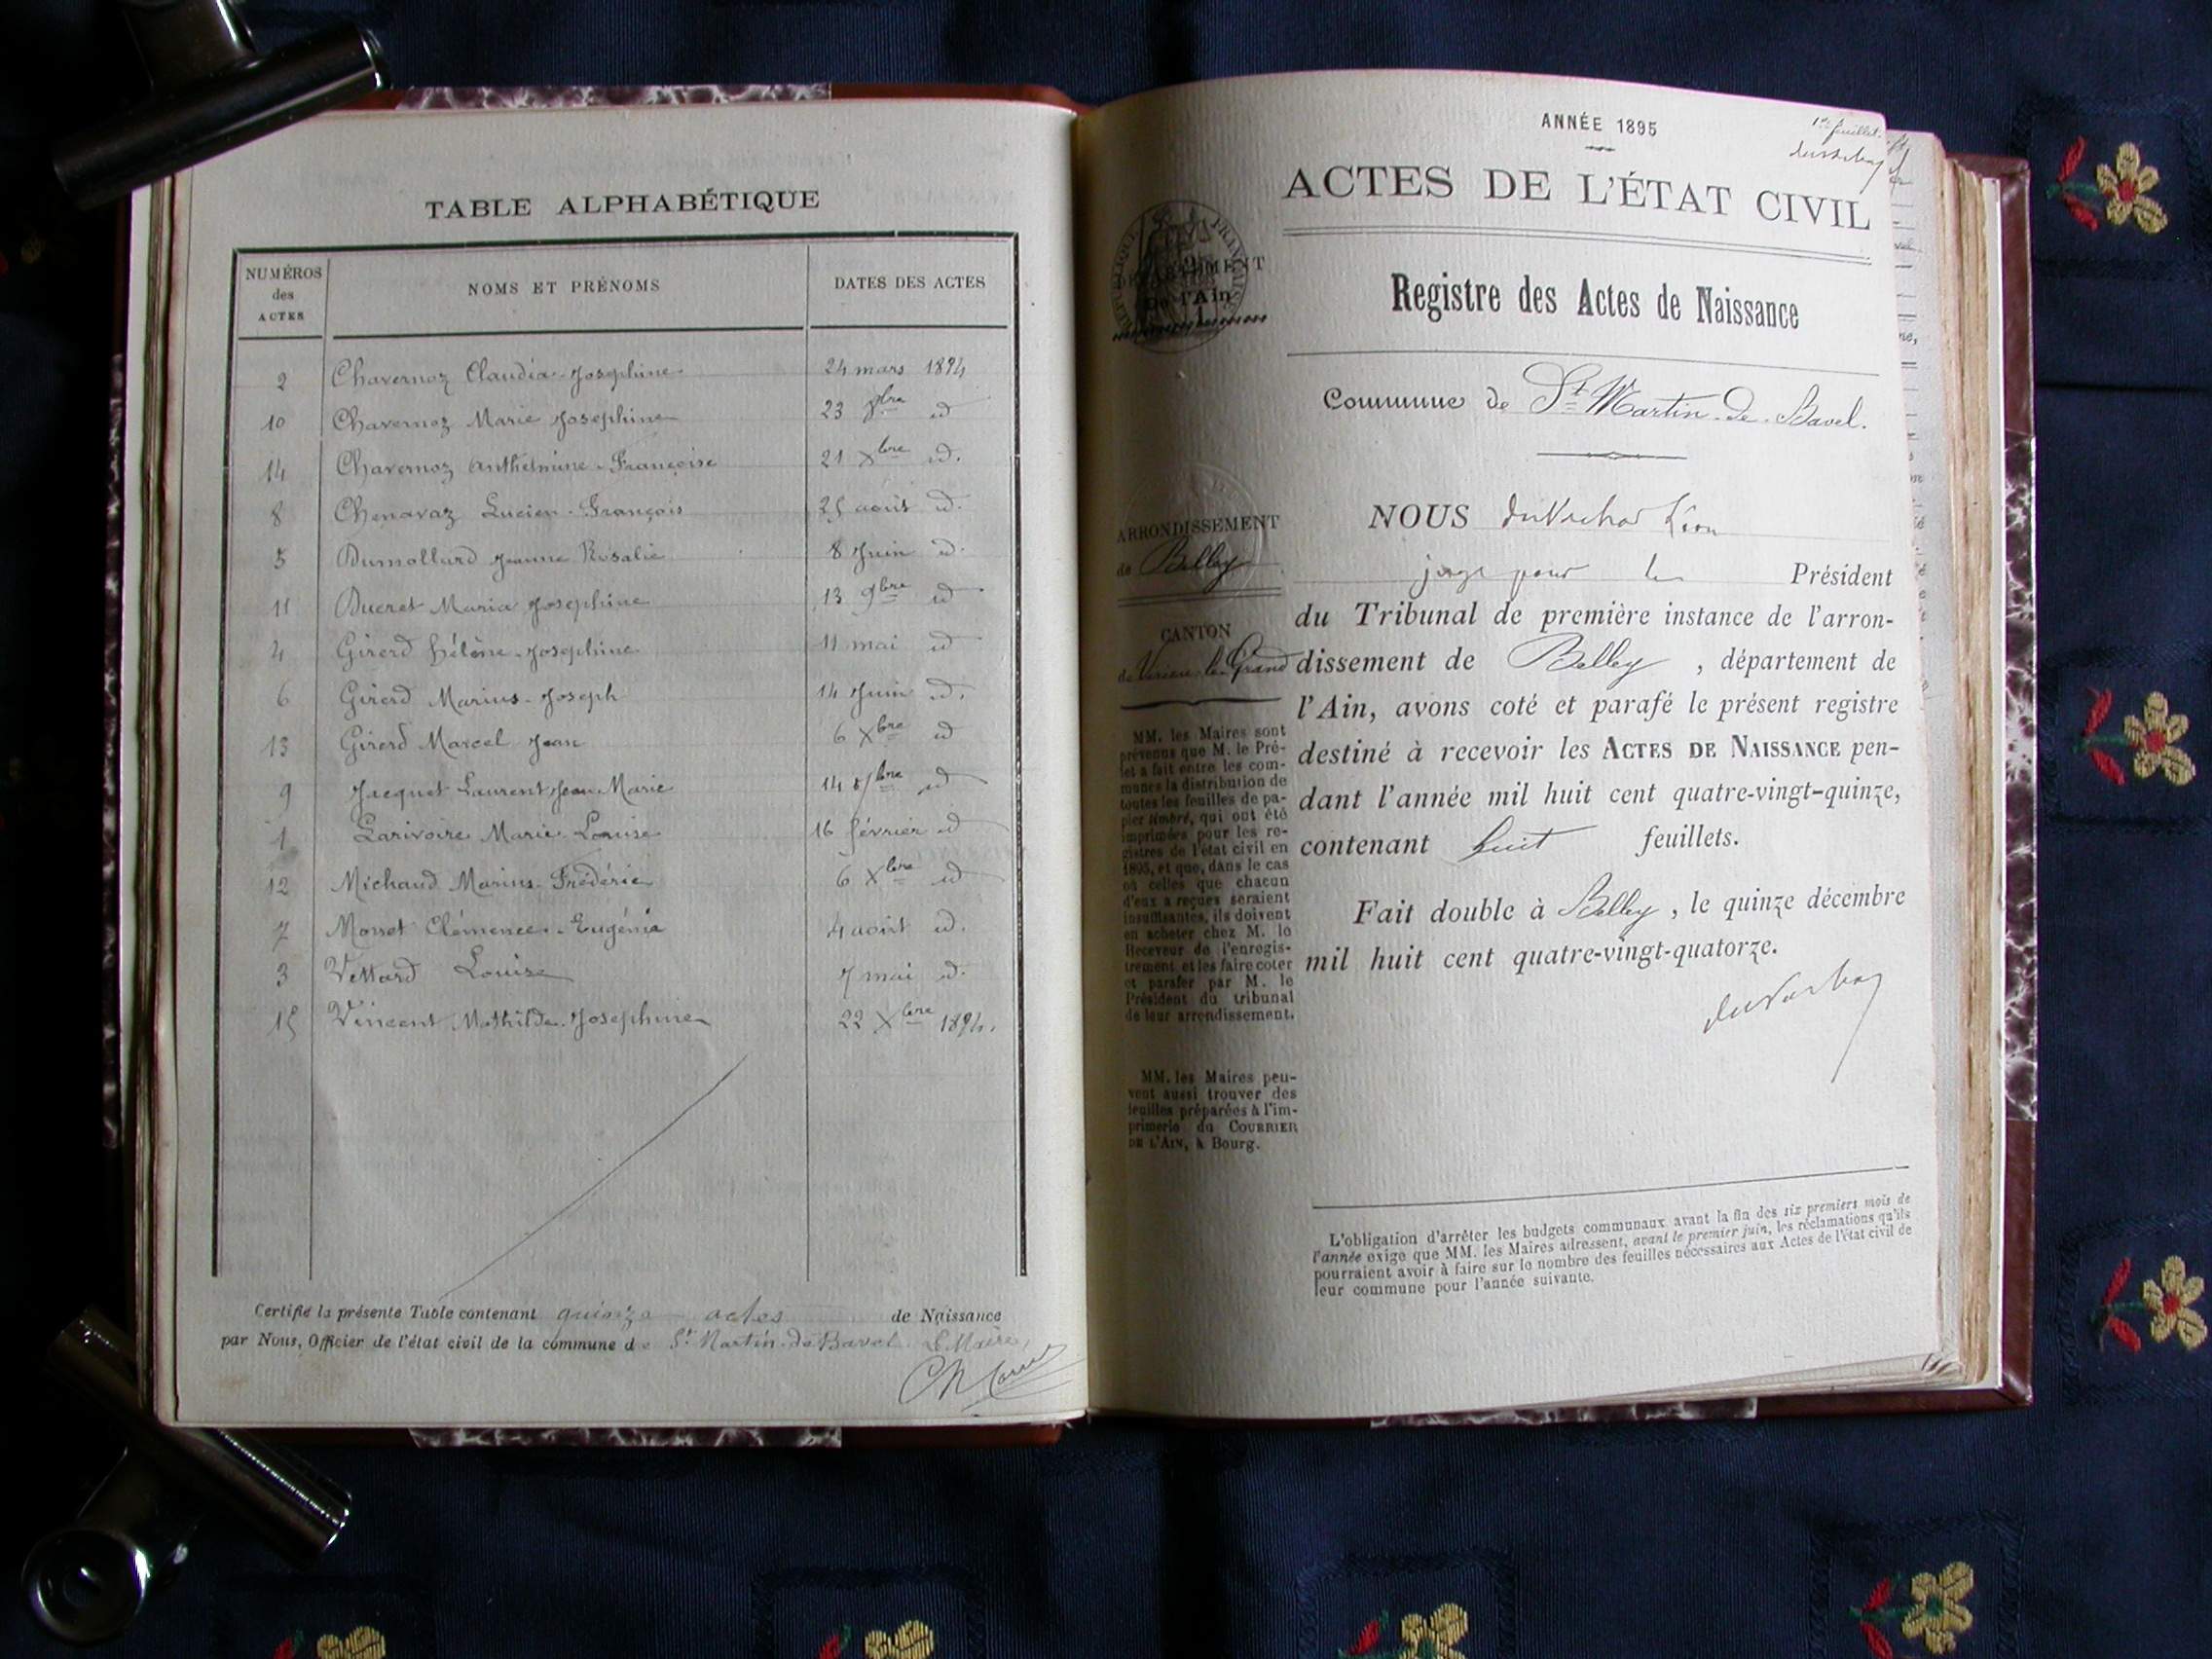 TABLE ALPHABÉTIQUE
NUMÉROS des ACTES NOMS ET PRÉNOMS DATES DES ACTES
2 Chavernoz Claudia-Josephine 24 mars 1894
10 Chavernoz Marie Josephine 23 id
14 Chavernoz Anthelmine-Françoise 21 Xbre id.
8 Chenavaz Lucien-François 25 août id.
5 Dumollard Jeanne Rosalie 8 Juin id.
11 Ducret Maria Josephine 13 9bre id
4 Girerd Hélène-Josephine 11 mai id
6 Girerd Marius-Joseph 14 Juin id.
13 Girerd Marcel Jean 6 Xbre id
9 Jacquet Laurent Jean Marie 14 id
1 Larivoire Marie-Louise 16 février id
12 Michaud Marius-Frédéric 6 Xbre id
7 Clémence-Eugénie 4 août id.
3 Vettard Louise 7 mai id.
15 Vincent Mathilde-Josephine 22 Xbre 1894.
Certifié la présente Table contenant quinze actes de Naissance
par Nous, Officier de l'état civil de la commune de St Martin-de-Bavel Le Maire,
ANNÉE 1895
1er feuillet.
ACTES DE L'ÉTAT CIVIL
RÉPUBLIQUE FRANÇAISE
DÉPARTEMENT
De l'Ain
Registre des Actes de Naissance
Commune de St Martin-de-Bavel.
ARRONDISSEMENT
de Belley
CANTON
de Virieu-le-Grand
MM. les Maires sont
prévenus que M. le Pré-
fet a fait entre les com-
munes la distribution de
toutes les feuilles de pa-
pier timbré, qui ont été
imprimées pour les re-
gistres de l'état civil en
1895, et que, dans le cas
où celles que chacun
d'eux a reçues seraient
insuffisantes, ils doivent
en acheter chez M. le
Receveur de l'enregis-
trement et les faire coter
et parafer par M. le
Président du tribunal
de leur arrondissement.
MM. les Maires peu-
vent aussi trouver des
feuilles préparées à l'im-
primerie du COURRIER
DE L'AIN, à Bourg.
NOUS Léon
juge pour le Président
du Tribunal de première instance de l'arron-
dissement de Belley, département de
l'Ain, avons coté et parafé le présent registre
destiné à recevoir les ACTES DE NAISSANCE pen-
dant l'année mil huit cent quatre-vingt-quinze,
contenant huit feuillets.
Fait double à Belley, le quinze décembre
mil huit cent quatre-vingt-quatorze.
L'obligation d'arrêter les budgets communaux avant la fin des six premiers mois de
l'année exige que MM. les Maires adressent, avant le premier juin, les réclamations qu'ils
pourraient avoir à faire sur le nombre des feuilles nécessaires aux Actes de l'état civil de
leur commune pour l'année suivante.